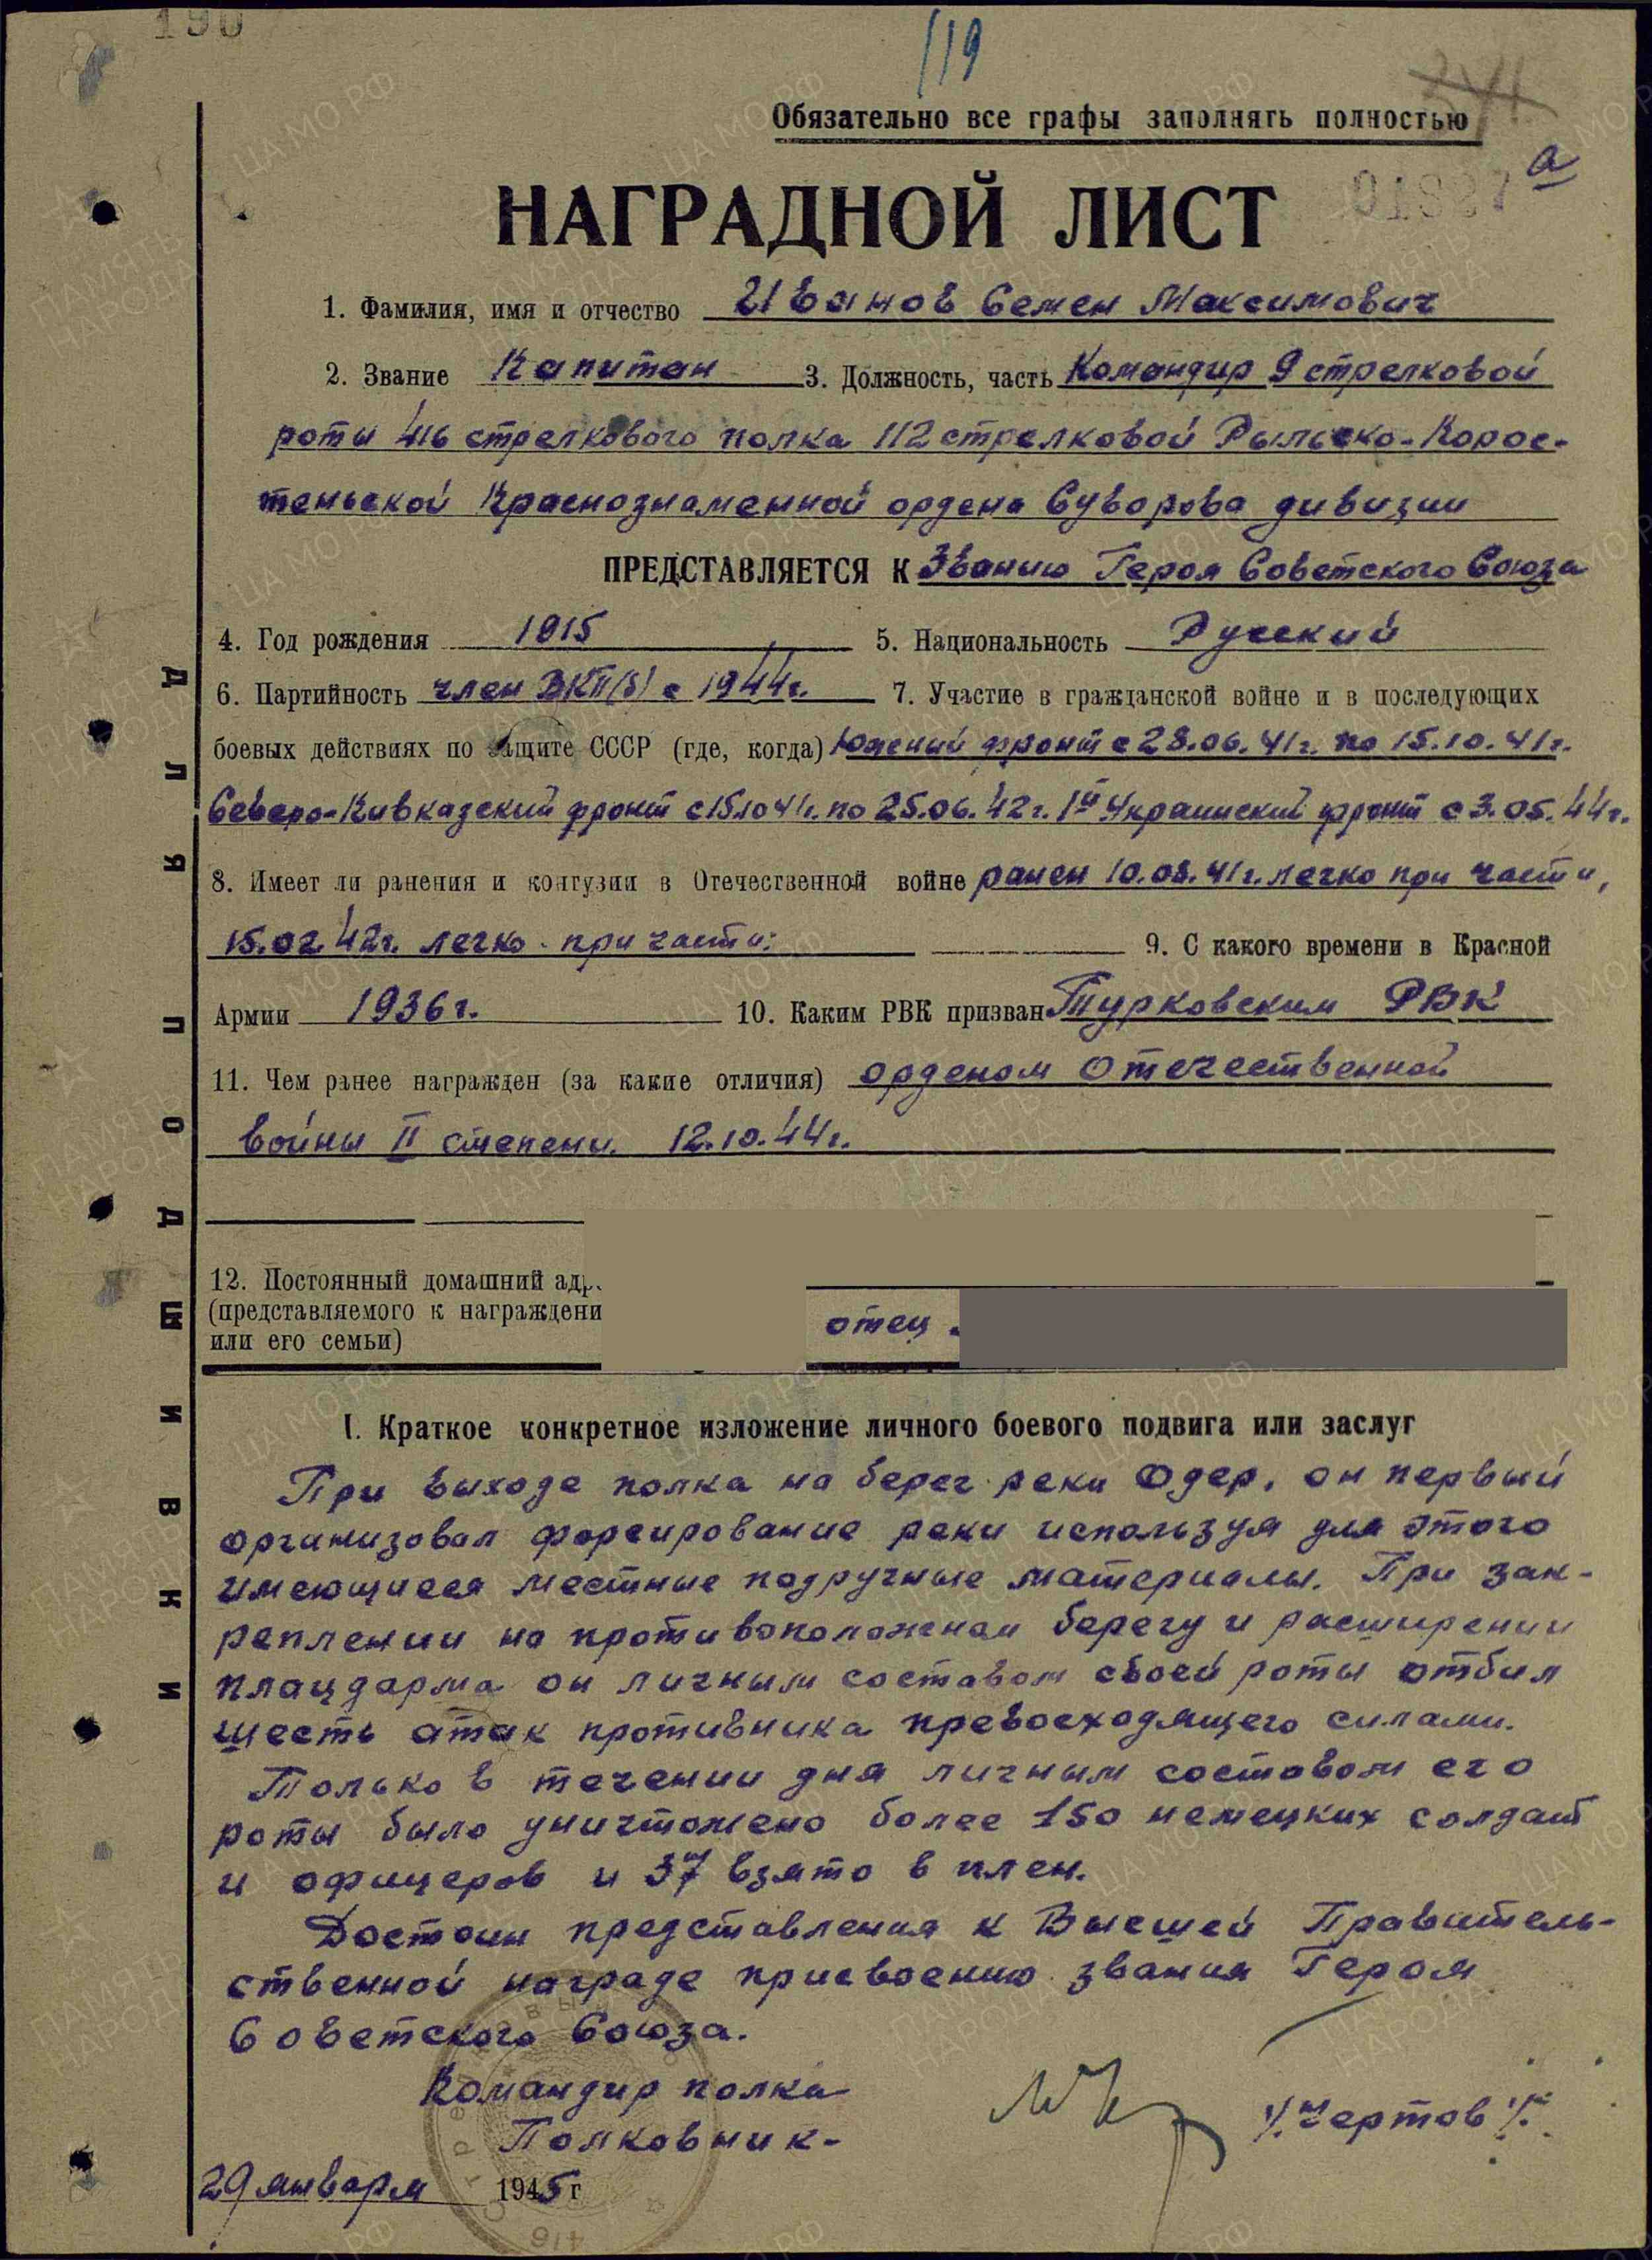 190
119
341
Обязательно все графы заполнять полностью
а
НАГРАДНОЙ ЛИСТ
1. Фамилия, имя и отчество Иванов Семен Максимович
2. Звание Капитан 3. Должность, часть Командир 9 стрелковой
роты 416 стрелкового полка 112 стрелковой Рыльско-Корос-
теньской Краснознаменной ордена Суворова дивизии
ПРЕДСТАВЛЯЕТСЯ К Званию Героя Советского Союза
4. Год рождения 1915 5. Национальность Русский
6. Партийность член ВКП(б) с 1944г. 7. Участие в гражданской войне и в последующих
боевых действиях по защите СССР (где, когда) Южный фронт с 28.06.41г. по 15.10.41г.
Северо-Кавказский фронт с 15.10.41г. по 25.06.42г. 1й Украинский фронт с 3.05.44г.
8. Имеет ли ранения и контузии в Отечественной войне ранен 10.08.41г. легко при части,
15.02.42г. легко - при части: 9. С какого времени в Красной
Армии 1936г. 10. Каким РВК призван Турковским РВК
11. Чем ранее награжден (за какие отличия) орденом Отечественной
войны II степени. 12.10.44г.
12. Постоянный домашний адр
(представляемого к награждени
или его семьи) отец
I. Краткое конкретное изложение личного боевого подвига или заслуг
При выходе полка на берег реки Одер, он первый
организовал форсирование реки используя для этого
имеющиеся местные подручные материалы. При зак-
реплении на противоположном берегу и расширении
плацдарма он личным составом своей роты отбил
шесть атак противника превосходящего силами.
Только в течении дня личным составом его
роты было уничтожено более 150 немецких солдат
и офицеров и 37 взято в плен.
Достоин представления к Высшей Правитель-
ственной награде присвоению звания Героя
Советского Союза.
Командир полка
Полковник- /Чертов/.
29 января 1945 г
416
ДЛЯ ПОДШИВКИ
ПАМЯТЬ НАРОДА
ЦА МО РФ